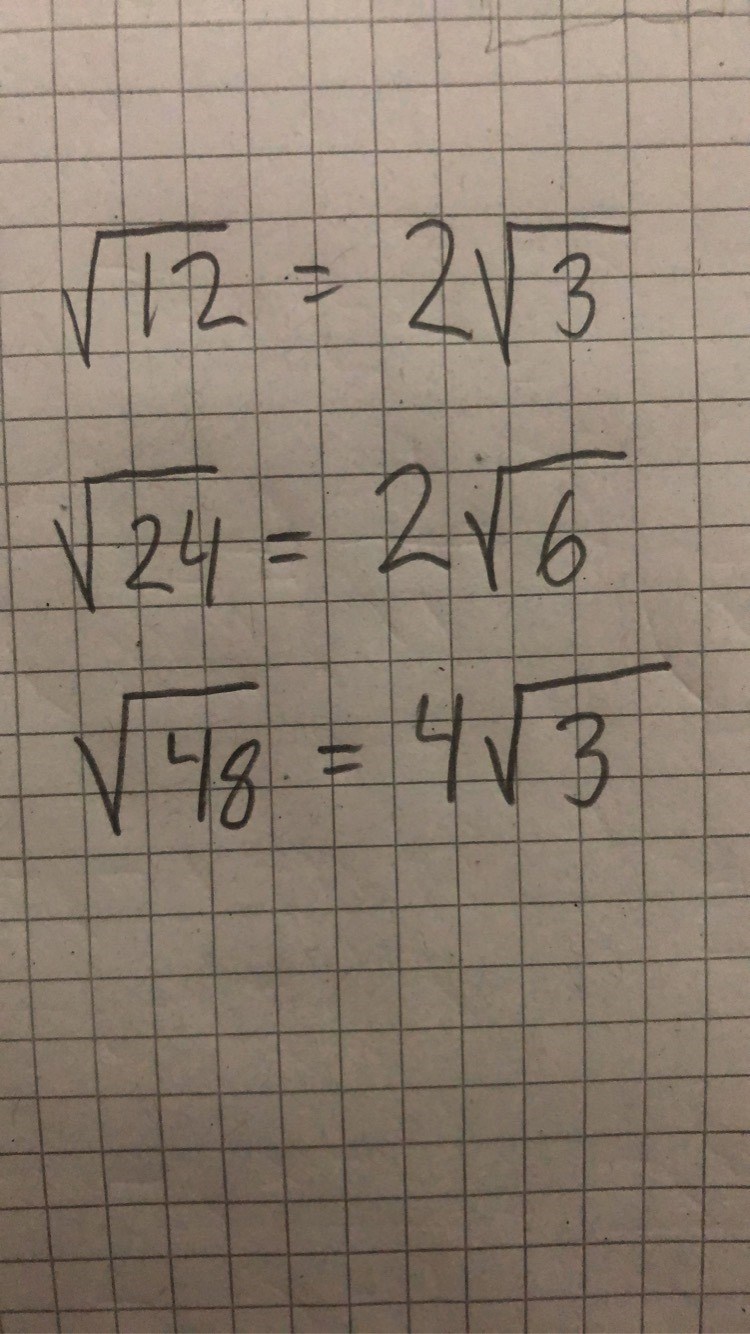 √12 = 2√3
√24 = 2√6
√48 = 4√3